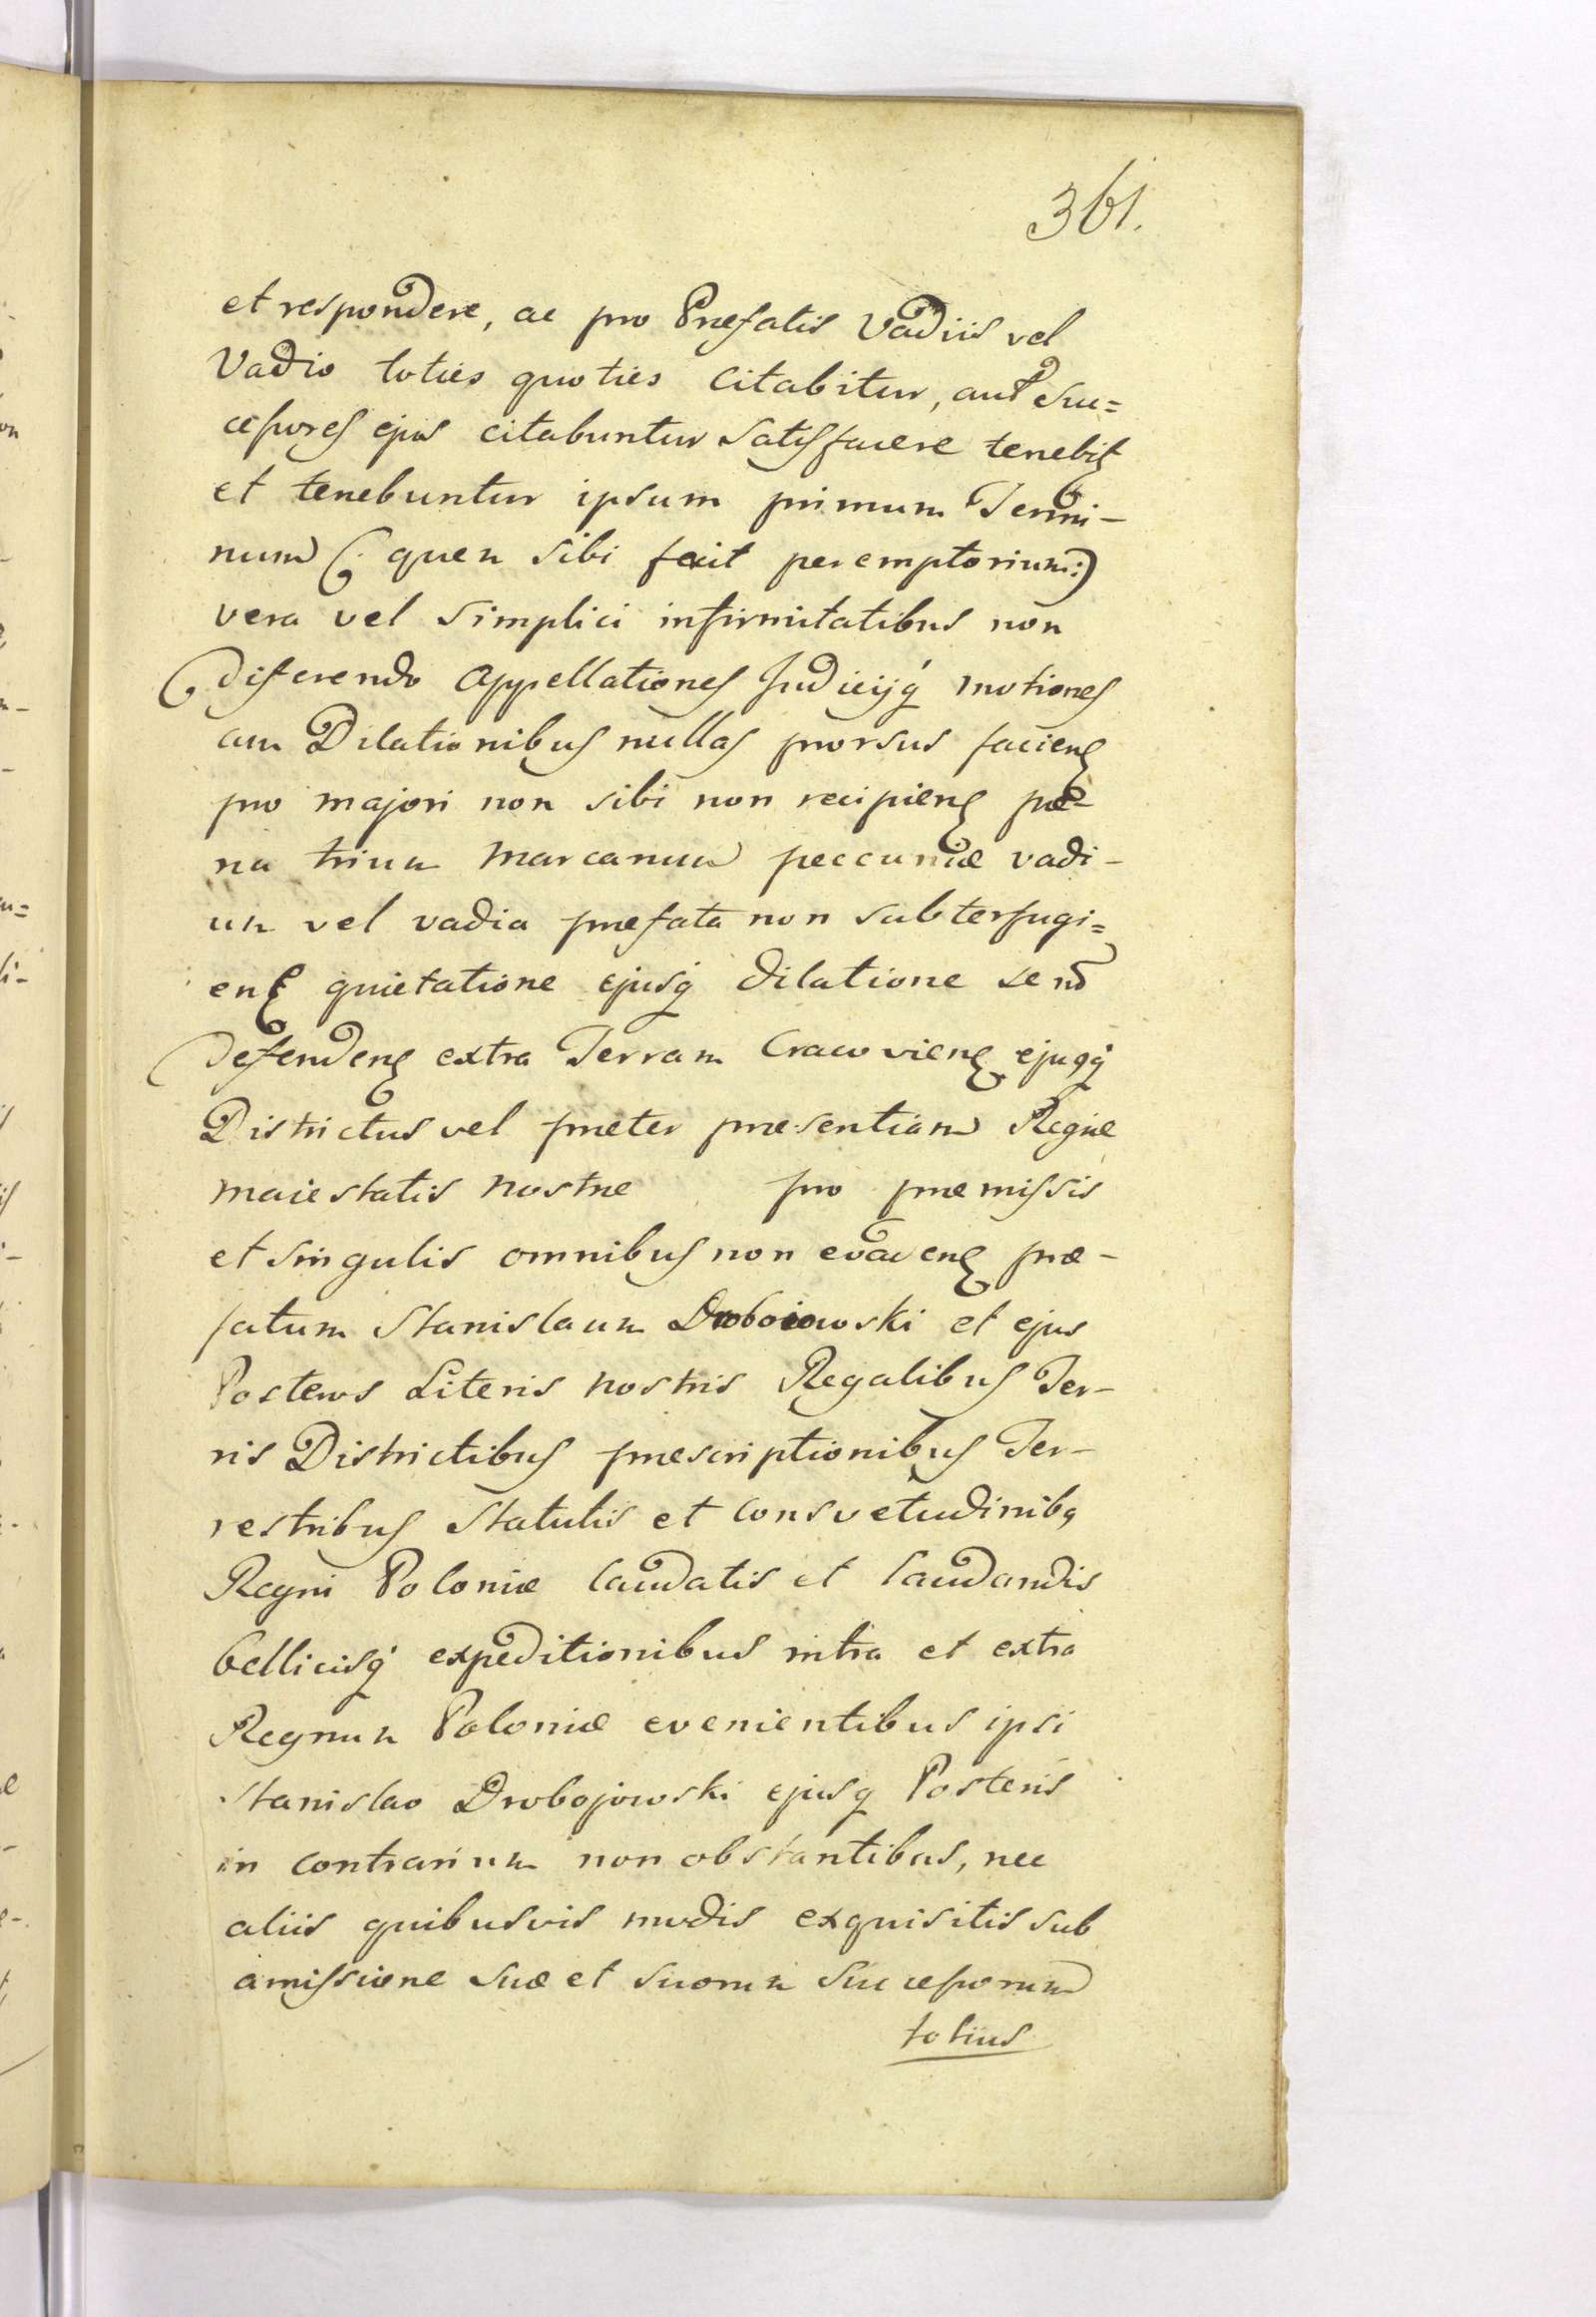 361.
et respondere, ac pro Præfatis Vadiis vel
Vadio toties quoties citabitur, aut Suc=
cessores ejus citabuntur satisfacere tenebit
et tenebuntur ipsum primum Termi-
num (: quem sibi fecit peremptorium:)
vera vel simplici infirmitatibus non
differendo Appellationes Judicijq motiones
cum Dilationibus nullas prorsus faciens
pro majori non sibi non recipiens pœ-
na trium Marcarum peccuniæ vadi-
um vel vadia præfata non subterfugi=
ens quietatione ejusq dilatione se non
Defendens extra Terram Cracoviens ejusq
Districtus vel præter præsentiam Regiæ
Maiestatis Nostræ pro præmissis
et singulis omnibus non evadens præ-
fatum Stanislaum Droboiowski et ejus
Posteros Literis Nostris Regalibus Ter-
ris Districtibus præscriptionibus Ter-
restribus Statutis et Consvetudinibq
Regni Poloniæ laudatis et laudandis
bellicisq expeditionibus intra et extra
Regnum Poloniæ evenientibus ipsi
Stanislao Drobojowski ejusq Posteris
in contrarium non obstantibus, nec
aliis quibusvis modis exquisitis sub
amissione suæ et suorum Successorum
totius